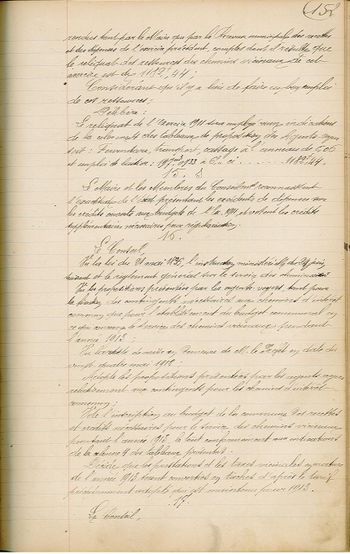 158
rendus tant par le Maire que par le Receveur municipal des recettes
et des dépenses de l'exercice précédent, comptes dont il résulte que
le reliquat des ressources des chemins vicinaux de cet
exercice est de 1182,44;
Considérant qu'il y a lieu de faire emploi
de ces ressources;
Délibère:
Le reliquat de l'exercice 1911 sera employé suivant indications
de la colonne des tableaux de proposition des Agents voyers
soit: Fourniture, transport, cassage à l'
et emploi de 1182,44
15.
Le Maire et les Membres du Conseil reconnaissant
l'exactitude de l'état présentant les excédents de dépenses sur
les crédits ouverts aux budgets de 1911, et votent les crédits
supplémentaires nécessaires pour régularisation.
16.
Le Conseil,
Vu la loi du 21 mai 1836, l'instruction ministérielle du
et le règlement général sur le service des chemins
Vu les propositions présentées par les agents voyers, tant pour
la des contingents vicinaux aux chemins d'intérêt
commun que pour l'établissement du budget communal en
ce qui concerne le service des chemins vicinaux pendant
l'année 1913;
Vu de Monsieur le Préfet en date du
vingt quatre mai 1912
Adopte les propositions présentées par les agents voyers
relativement aux contingents pour les chemins d'intérêt
commun;
Vote l'inscription au budget de la commune des recettes
et crédits nécessaires pour le service des chemins vicinaux
pendant l'année 1913, le tout conformément aux indications
de la colonne 9 des tableaux présentés.
Décide que les prestations et les taxes vicinales
de l'année 1913 seront converties en tâches d'après le tarif
précédemment adopté qui est maintenu pour 1913.
17.
Le Conseil,